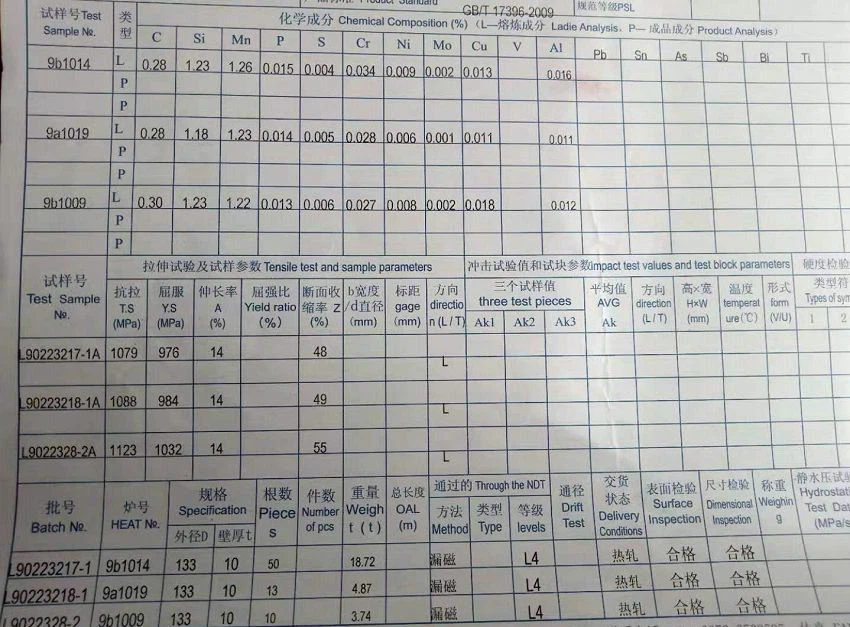 GB/T 17396-2009
规范等级PSL
试样号Test Sample №.
类型
化学成分 Chemical Composition (%)（L—熔炼成分 Ladie Analysis，P—成品成分 Product Analysis）
C Si Mn P S Cr Ni Mo Cu V Al Pb Sn As Sb Bi Ti
9b1014 L 0.28 1.23 1.26 0.015 0.004 0.034 0.009 0.002 0.013 0.016
P
P
9a1019 L 0.28 1.18 1.23 0.014 0.005 0.028 0.006 0.001 0.011 0.011
P
P
9b1009 L 0.30 1.23 1.22 0.013 0.006 0.027 0.008 0.002 0.018 0.012
P
P
试样号 Test Sample №.
拉伸试验及试样参数 Tensile test and sample parameters
冲击试验值和试块参数Impact test values and test block parameters
硬度检验
抗拉 T.S (MPa)
屈服 Y.S (MPa)
伸长率 A (%)
屈强比 Yield ratio (%)
断面收缩率 Z (%)
b宽度/d直径 (mm)
标距 gage (mm)
方向 direction (L/T)
三个试样值 three test pieces
Ak1 Ak2 Ak3
平均值 AVG Ak
方向 direction (L/T)
高×宽 H×W (mm)
温度 temperature(℃)
形式 form (V/U)
类型符
Types of sym
1 2
L90223217-1A 1079 976 14 48 L
L90223218-1A 1088 984 14 49 L
L9022328-2A 1123 1032 14 55 L
批号 Batch №.
炉号 HEAT №.
规格 Specification
外径D 壁厚t
根数 Pieces
件数 Number of pcs
重量 Weight (t)
总长度 OAL (m)
通过的 Through the NDT
方法 Method
类型 Type
等级 levels
通径 Drift Test
交货状态 Delivery Conditions
表面检验 Surface Inspection
尺寸检验 Dimensional Inspection
称重 Weighing
静水压试验
Hydrostati
Test Dat
(MPa/s
L90223217-1 9b1014 133 10 50 18.72 漏磁 L4 热轧 合格 合格
L90223218-1 9a1019 133 10 13 4.87 漏磁 L4 热轧 合格 合格
L9022328-2 9b1009 133 10 10 3.74 漏磁 L4 热轧 合格 合格